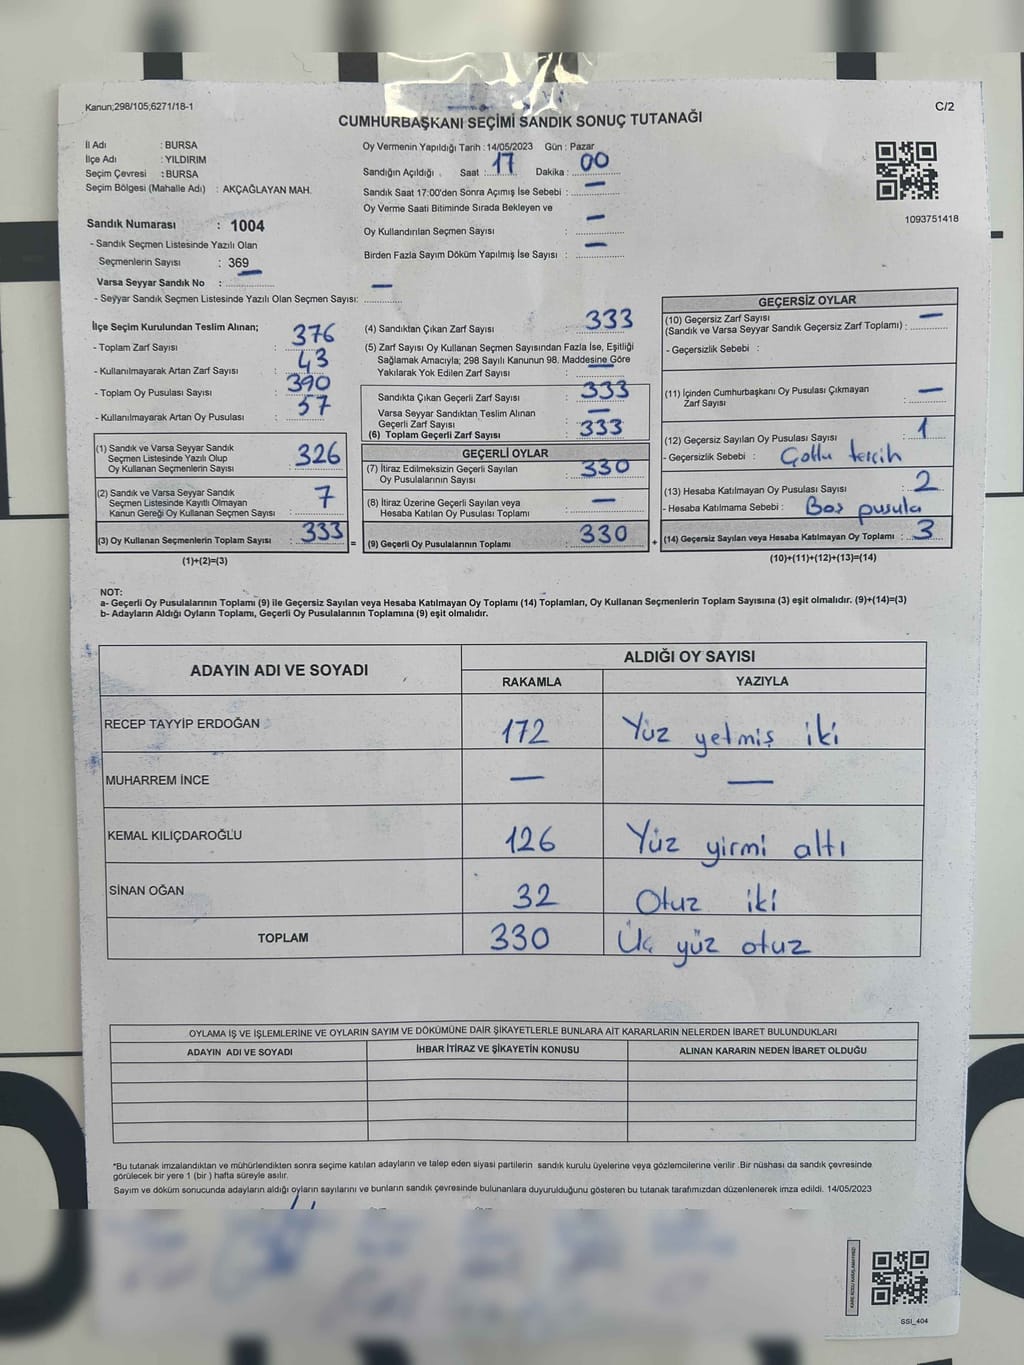 Kanun;298/105;6271/18-1
C/2
CUMHURBAŞKANI SEÇİMİ SANDIK SONUÇ TUTANAĞI
İl Adı : BURSA
İlçe Adı : YILDIRIM
Seçim Çevresi : BURSA
Seçim Bölgesi (Mahalle Adı) : AKÇAĞLAYAN MAH.
Oy Vermenin Yapıldığı Tarih :14/05/2023 Gün : Pazar
Sandığın Açıldığı Saat : 17 Dakika : 00
Sandık Saat 17:00'den Sonra Açımış İse Sebebi : —
Oy Verme Saati Bitiminde Sırada Bekleyen ve
Oy Kullandırılan Seçmen Sayısı : —
Birden Fazla Sayım Döküm Yapılmış İse Sayısı : —
1093751418
Sandık Numarası : 1004
- Sandık Seçmen Listesinde Yazılı Olan
Seçmenlerin Sayısı : 369
Varsa Seyyar Sandık No : —
- Seyyar Sandık Seçmen Listesinde Yazılı Olan Seçmen Sayısı: —
İlçe Seçim Kurulundan Teslim Alınan;
- Toplam Zarf Sayısı : 376
- Kullanılmayarak Artan Zarf Sayısı : 43
- Toplam Oy Pusulası Sayısı : 390
- Kullanılmayarak Artan Oy Pusulası : 57
(1) Sandık ve Varsa Seyyar Sandık
Seçmen Listesinde Yazılı Olup
Oy Kullanan Seçmenlerin Sayısı : 326
(2) Sandık ve Varsa Seyyar Sandık
Seçmen Listesinde Kayıtlı Olmayan
Kanun Gereği Oy Kullanan Seçmen Sayısı : 7
(3) Oy Kullanan Seçmenlerin Toplam Sayısı : 333 =
(1)+(2)=(3)
(4) Sandıktan Çıkan Zarf Sayısı : 333
(5) Zarf Sayısı Oy Kullanan Seçmen Sayısından Fazla İse, Eşitliği
Sağlamak Amacıyla; 298 Sayılı Kanunun 98. Maddesine Göre
Yakılarak Yok Edilen Zarf Sayısı : —
Sandıkta Çıkan Geçerli Zarf Sayısı : 333
Varsa Seyyar Sandıktan Teslim Alınan
Geçerli Zarf Sayısı : —
(6) Toplam Geçerli Zarf Sayısı : 333
GEÇERLİ OYLAR
(7) İtiraz Edilmeksizin Geçerli Sayılan
Oy Pusulalarının Sayısı : 330
(8) İtiraz Üzerine Geçerli Sayılan veya
Hesaba Katılan Oy Pusulası Toplamı : —
(9) Geçerli Oy Pusulalarının Toplamı : 330 +
GEÇERSİZ OYLAR
(10) Geçersiz Zarf Sayısı
(Sandık ve Varsa Seyyar Sandık Geçersiz Zarf Toplamı) : —
- Geçersizlik Sebebi :
(11) İçinden Cumhurbaşkanı Oy Pusulası Çıkmayan
Zarf Sayısı : —
(12) Geçersiz Sayılan Oy Pusulası Sayısı : 1
- Geçersizlik Sebebi : Çoklu tercih
(13) Hesaba Katılmayan Oy Pusulası Sayısı : 2
- Hesaba Katılmama Sebebi : Boş pusula
(14) Geçersiz Sayılan veya Hesaba Katılmayan Oy Toplamı : 3
(10)+(11)+(12)+(13)=(14)
NOT:
a- Geçerli Oy Pusulalarının Toplamı (9) ile Geçersiz Sayılan veya Hesaba Katılmayan Oy Toplamı (14) Toplamları, Oy Kullanan Seçmenlerin Toplam Sayısına (3) eşit olmalıdır. (9)+(14)=(3)
b- Adayların Aldığı Oyların Toplamı, Geçerli Oy Pusulalarının Toplamına (9) eşit olmalıdır.
ADAYIN ADI VE SOYADI ALDIĞI OY SAYISI
RAKAMLA YAZIYLA
RECEP TAYYİP ERDOĞAN 172 Yüz yetmiş iki
MUHARREM İNCE — —
KEMAL KILIÇDAROĞLU 126 Yüz yirmi altı
SİNAN OĞAN 32 Otuz iki
TOPLAM 330 Üç yüz otuz
OYLAMA İŞ VE İŞLEMLERİNE VE OYLARIN SAYIM VE DÖKÜMÜNE DAİR ŞİKAYETLERLE BUNLARA AİT KARARLARIN NELERDEN İBARET BULUNDUKLARI
ADAYIN ADI VE SOYADI İHBAR İTİRAZ VE ŞİKAYETİN KONUSU ALINAN KARARIN NEDEN İBARET OLDUĞU
*Bu tutanak imzalandıktan ve mühürlendikten sonra seçime katılan adayların ve talep eden siyasi partilerin sandık kurulu üyelerine veya gözlemcilerine verilir .Bir nüshası da sandık çevresinde
görülecek bir yere 1 (bir ) hafta süreyle asılır.
Sayım ve döküm sonucunda adayların aldığı oyların sayılarını ve bunların sandık çevresinde bulunanlara duyurulduğunu gösteren bu tutanak tarafımızdan düzenlenerek imza edildi. 14/05/2023
SSI_404